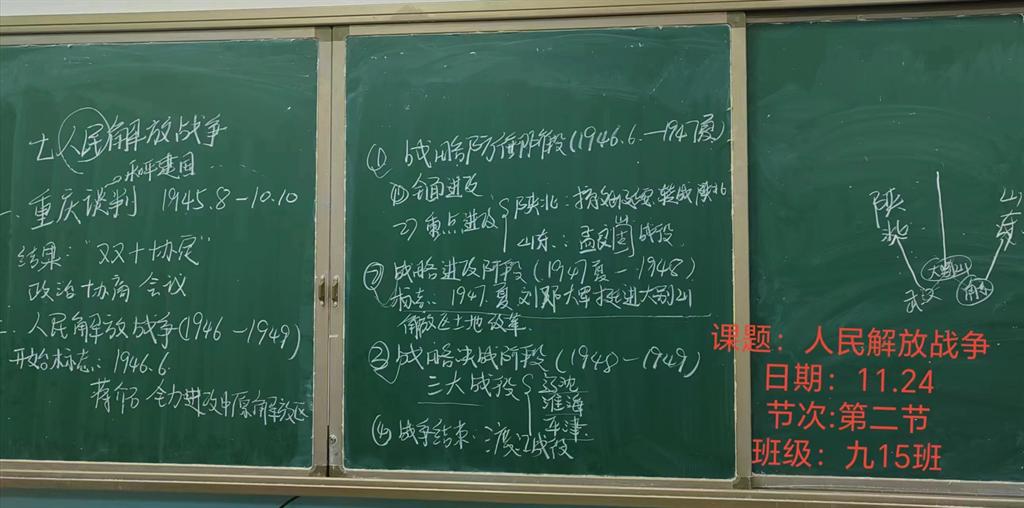 七 人民解放战争
和平建国
一、重庆谈判 1945.8-10.10
结果:"双十协定"
政治协商会议
二、人民解放战争(1946-1949)
开始标志:1946.6.
蒋介石 全力进攻中原解放区
① 战略防御阶段(1946.6.-1947夏)
1) 全面进攻
2) 重点进攻
陕北:转战陕北
山东:孟良崮战役
② 战略进攻阶段(1947夏-1948)
标志:1947.夏 刘邓大军挺进大别山
解放区土地改革.
③ 战略决战阶段(1948-1949)
三大战役
辽沈
淮海
平津
④ 战争结束:渡江战役
陕北
山东
大别山
武汉
课题:人民解放战争
日期:11.24
节次:第二节
班级:九15班